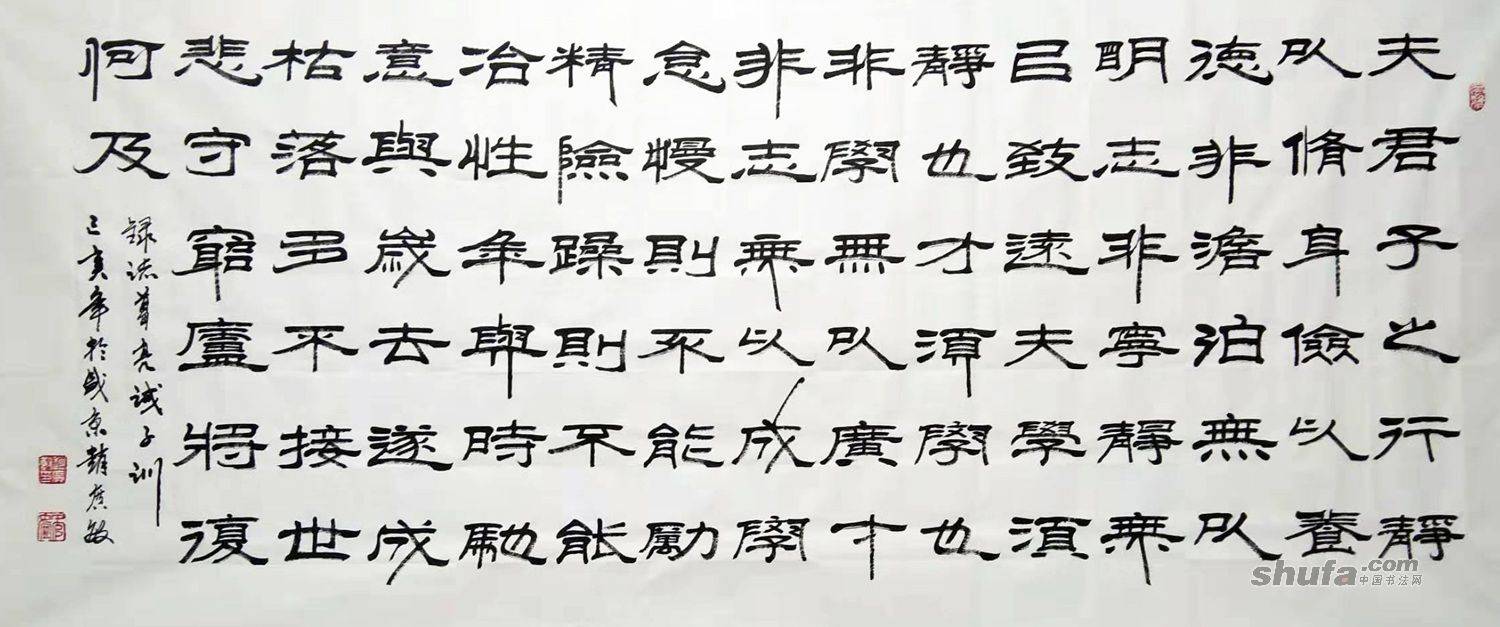 夫君子之行靜
以脩身儉以養
德非澹泊無以
明志非寧靜無
㠯致遠夫學須
靜也才須學也
非學無以廣才
非志無以成學
怠慢則不能勵
精險躁則不能
冶性年與時馳
意與歲去遂成
枯落多不接世
悲守窮廬將復
何及
録诸葛亮誡子训
己亥年於盛京趙
shufa.com
中国书法网